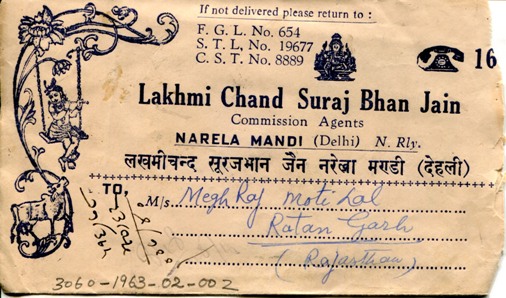 If not delivered please return to :
F. G. L. No. 654
S. T. L, No. 19677
C. S. T. No. 8889
16
Lakhmi Chand Suraj Bhan Jain
Commission Agents
NARELA MANDI (Delhi) N. Rly.
लखमीचन्द सूरजभान जैन नरेला मण्डी (देहली)
TO,
M/s. Megh Raj Moti Lal
Ratan Garh
(Rajasthan)
3060-1963-02-002